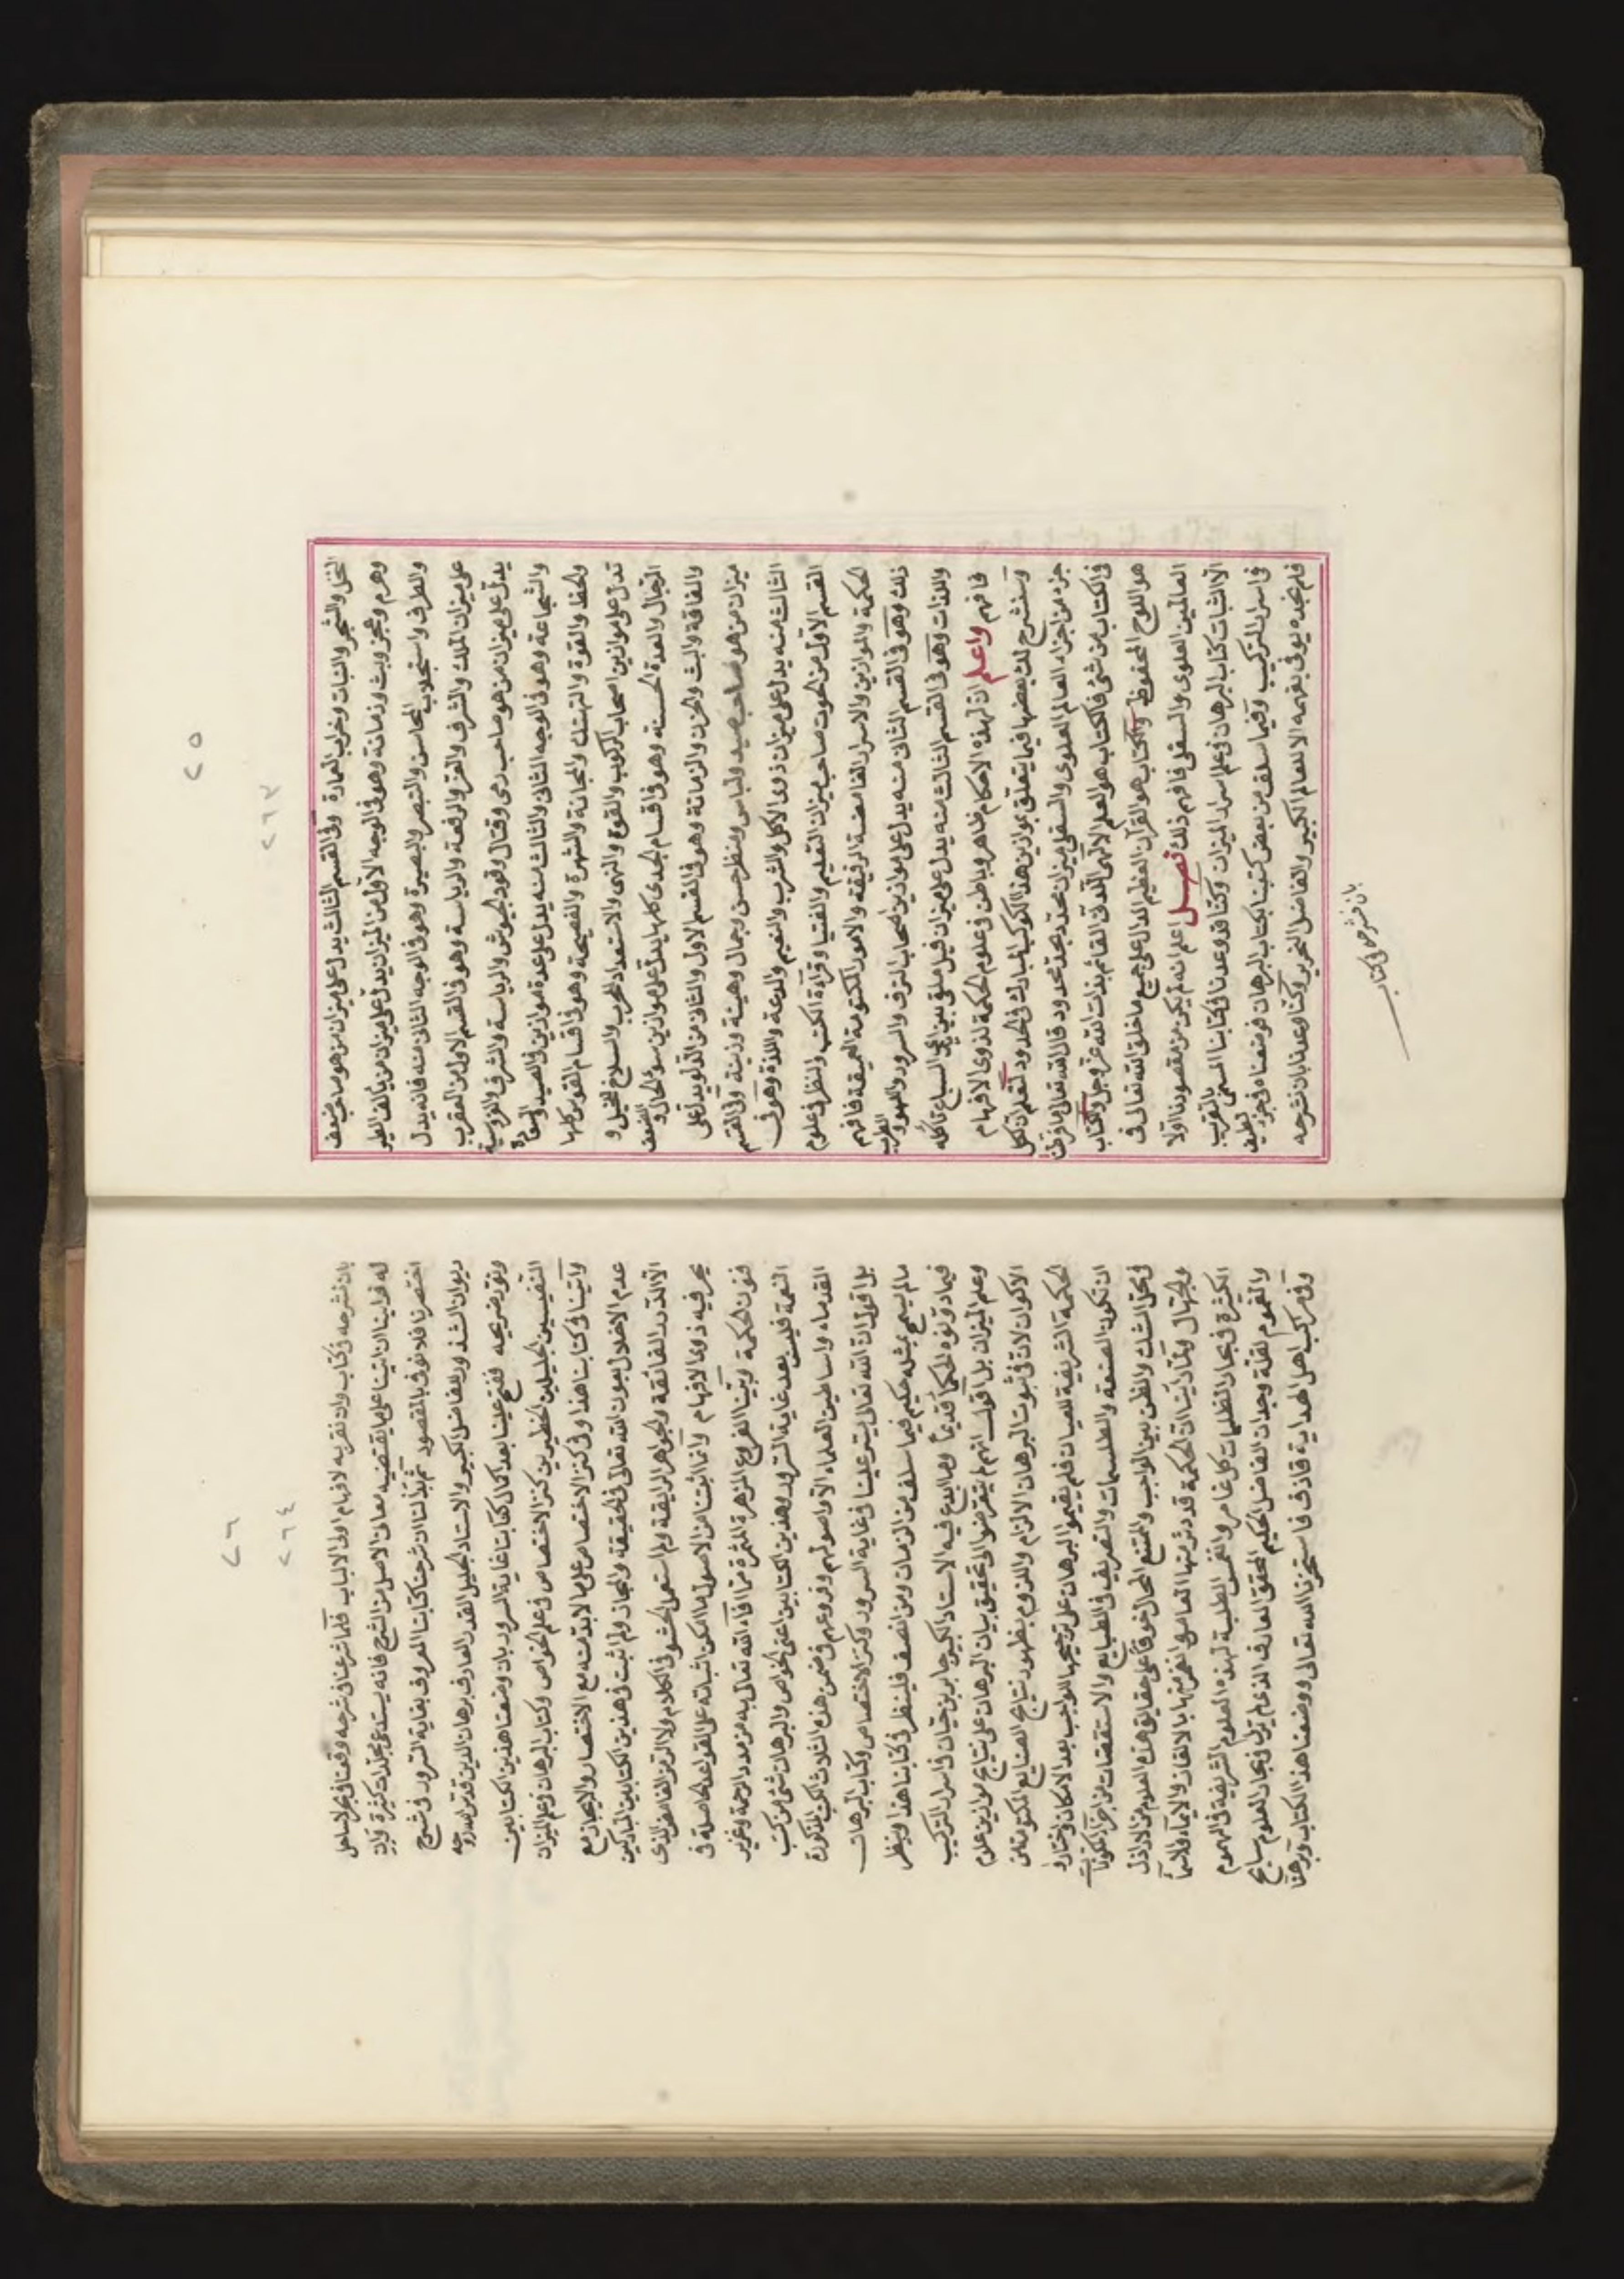 ٢٥
٢٦٣
النخل والشجر والنبات وخراب العمارة وفى القسم الثالث يدل على ميزان من هو صاحب ضعف
وهرم وعجز وبث وزمانة وهو فى الوجه الأول من الميزان يدل على ميزان من يألف الطير
والطرف واستجلاب المحاسن والتبصر والبصيرة وهو فى الوجه الثانى منه فانه يدل
على ميزان الملك والشرف والعز والرفعة والرياسة وهو فى القسم الاول من العقرب
يدل على ميزان من هو صاحب رمى وقتال وقود الجيوش والرياسة والشرف والفروسية
والشجاعة وهو فى الوجه الثانى والثالث منه يدل على عدة موازين فى الصيد والسعادة
والحفظ والقوة والتهتك والمجانة والشهرة والفضيحة وهو فى اقسام القوس كلها
تدل على موازين اصحاب الركوب والقوة والنهى والاستعداد للحرب والسلاح للخيل و
الرجال والعدة الحسنة وهو فى اقسام الجدى كلها يدل على موازين سوء الحال والضعف
والفاقة والبث والحزن والزمانة وهو فى القسم الاول والثانى من الدلو يدل على
ميزان من هو صاحب صيد ولباس ومنظر حسن وجمال وهيئة وزينة وفى القسم
الثالث منه يدل على ميزان ذوى الاكل والشرب والنعيم والدعة واللذة وهو فى
القسم الأول من الحوت صاحب ميزان التقديم والفتيا وقراءة الكتب والنظر فى علوم
الحكمة والموازين والاسرار الغامضة الرفيقة والامور المكتومة العميقة فافهم
ذلك وهو فى القسم الثانى منه يدل على موازين اصحاب الترف والسرور واللهو والطرب
واللذات وهو فى القسم الثالث منه يدل على ميزان قيل ملقى بين ايدى السباع تاكله
فافهم واعلم ان لهذه الاحكام ظاهر وباطن فى علوم الحكمة لذوى الافهام
وسنشرح لك بعضها فيما يتعلق بموازين هذا الكوكب المبارك فى الحدود لتعلم ان لكل
جزء من اجزاء العالم العلوى والسفلى ميزان محدد بحد محدود قال الله تعالى ما فرطنا
فى الكتاب من شئ فالكتاب هو العلم الالهى اللدنى القائم بذات الله عز وجل والكتاب
هو اللوح المحفوظ والكتاب هو القرآن العظيم الدال على جميع ما خلق الله تعالى فى
العالمين العلوى والسفلى فافهم ذلك فصل اعلم انه لم يكن من مقصودنا اولا
الا اثبات كتاب البرهان فى علم اسرار الميزان وكنا قد وعدنا فى كتابنا المسمى بالتقريب
فى اسرار التركيب وفيما سلف من بعض كتبنا بكتاب البرهان فوضعناه فى جزء لطيف
فلم نجده يوفى بفهمه الا للعالم الكبير والفاضل النحرير وكنا وعدنا بان نشرحه
بان نشرحه فى كتاب
٢٦
٢٦٤
بان نشرحه فى كتاب وان نقربه لافهام اولى الالباب فلما شرعنا فى شرحه وقعنا فى بحر لا ساحل
له فراينا ان اثبتنا على ما يقتضيه معانى الاصل من الشرح فانه يستدعى مجلدات كثيرة وان
اختصرنا فلا نوفى بالمقصود ثم بذلنا ان شرحنا كتابنا المعروف بغاية السرور فى شرح
ديوان الشذور للفاضل الكبير والاستاد الجليل القدر العارف برهان الدين قدس الله روحه
ونور ضريحه ففتح علينا بعد اكمال كتابنا غاية السرور بان وضعنا هذين الكتابين
النفيسين الجليلين الخطيرين كنز الاختصاص فى علم الخواص وكتاب البرهان فى علم الميزان
واثبتنا فى كتابنا هذا وفى كنز الاختصاص على ما لا بد منه مع الاختصار والايجاز مع
عدم الاخلال بعون الله تعالى فى الحقيقة والمجاز ولم اثبت فى هذين الكتابين المباركين
الا الدرر الفائقة والجواهر الرايقة ولم استعمل الحشو فى الكلام ولا الرمز الغامض الذى
يحير فيه ذوى الافهام وانما اثبتنا من الاصول ما امكن اثباته على القواعد الحاصلة فى
فنون الحكمة وبينا الفروع المزهرة المثمرة مما افاء الله تعالى به من مدد الرحمة وغزير
النعمة فليس بعد غاية السرور وهذين الكتابين اعنى الخواص والبرهان شئ من كتب
القدماء واساطين العلماء الا واصولهم وفروعهم فى ضمن هذه الثلاث الكتب المذكورة
بل اقول ان الله تعالى يسر علينا فى غاية السرور وكنز الاختصاص وكتاب البرهان
مالم يسمح بمثله حكيم فيما سلف من الزمان ومن انصف فلينظر فى كتابنا هذا وينظر
فيما دونوه الحكما قديماً وما ابدع فيه الاستاد الكبير جابر بن حيان فى اسرار التركيب
وعلم الميزان بل اقول انهم لم يتعرضوا الى تحقيق بيان البرهان على نتايج موازين علوم
الاكوان لان فى ثبوت البرهان الالزام واللزوم بظهور نتايج الصنايع المكتومة من
الحكمة الشريفة للعيان فلم يقيموا البرهان على ترجيحها للواجب بعد الامكان واختاروا
ان تكون الصنعة والطلسمات والتصريف فى الطبايع والاستقصات من اجزاء المكونات
فى محل الشك والظن بين الواجب والممتنع المحال خوفاً على حقايق هذه العلوم من الاراذل
والجهال ولما راينا ان الحكمة قد دثر منها المعاصر انعزتها بالالغاز والايماء ولاسيما
الكثيرة فى بحار الظلمات كل غامر والنفس الطلبة لهذه العلوم الشريفة فى الهموم
والغموم لقلة وجدان الفاضل الحكيم المحقق العارف الذى لم يزل فى بحار العلوم سابح
وفى مركب اهل الهداية قاذف فاستخرنا الله تعالى ووضعنا هذا الكتاب وبرهنا